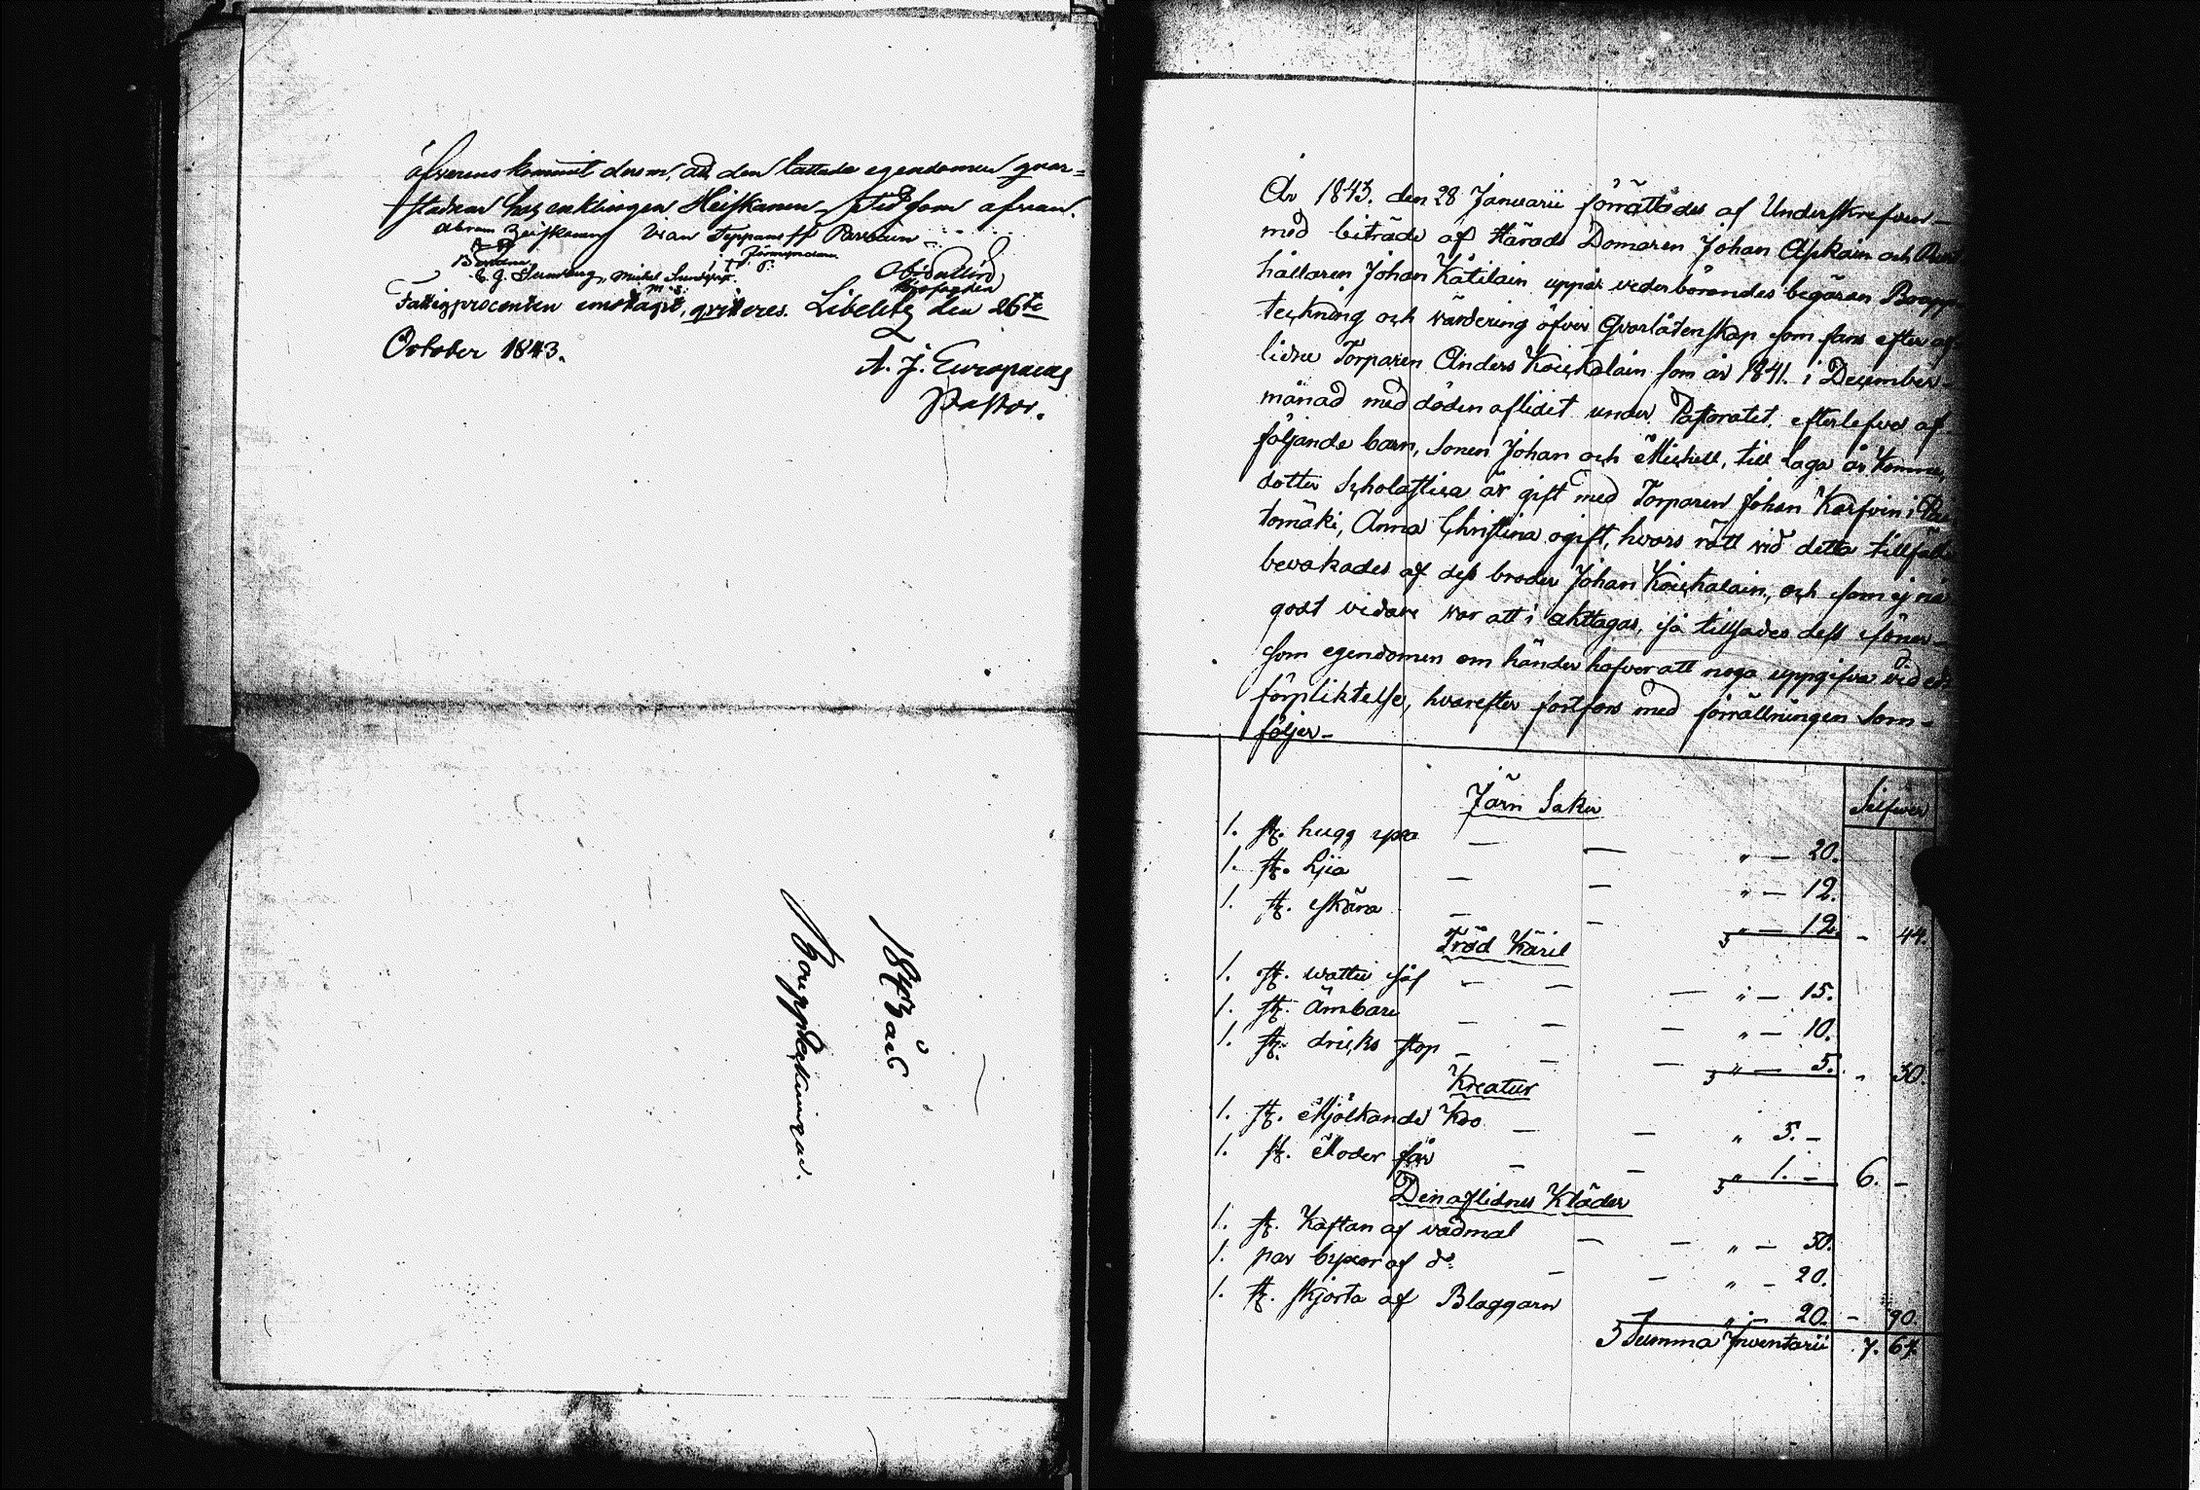 öfverens kommit derom, att den lottade egendomen qvar-
stadnar hos enklingen Heiskanen
Abram Heiskanen
Förmyndare
Fattigprocenten emottagit, qvitteres. Libelitz den 26te
October 1843.
A. J. Europaeus
Pastor.
1843 års
Bouppteckningar.
År 1843. den 28 Januarii förrättades af Underskrefven
med biträde af Härads Domaren Johan Asikain och
hållaren Johan Kätilain uppå vederbörandes begäran Boupp
teckning och värdering öfver Qvarlåtenskap som fans efter af
lidne Torparen Anders Koickalain som år 1841. i December
månad med döden aflidit under Pastoratet. efterlefvd af
följande barn, Sonen Johan och Michell, till laga år komne,
dotter Scholastica är gift med Torparen Johan Karfvin i
tomäki, Anna Christina ogift, hvars rätt vid detta tillfälle
bevakades af dess broder Johan Koickalain, och som ej nå
godt vidare var att i akttagas, så tillsades dess söner
som egendomen om händer hafver att noga uppgifva vid ed
förpliktelse, hvarefter fortfors med förrättningen som
följer
Silfver
Järn Saker
1. st. hugg yxa — — " — 20.
1. st. Ljia — — " — 12.
1. st. skära — — " — 12. - 44.
Träd Käril
1. st. watten så — — — " — 15.
1. st. Ämbare — — — " — 10.
1. st. dricks stop — — — " — 5. " 30.
Kreatur
1. st. Mjölkande Ko — — " 5. —
1. st. Moder får — — " 1. — 6. —
Den aflidnes Kläder
1. st. Kaftan af vadmal — — " — 50.
1. par byxor af do — — " — 20.
1. st. skjorta af Blaggarn " — 20. — 90.
Summa Inventarii 7. 64.